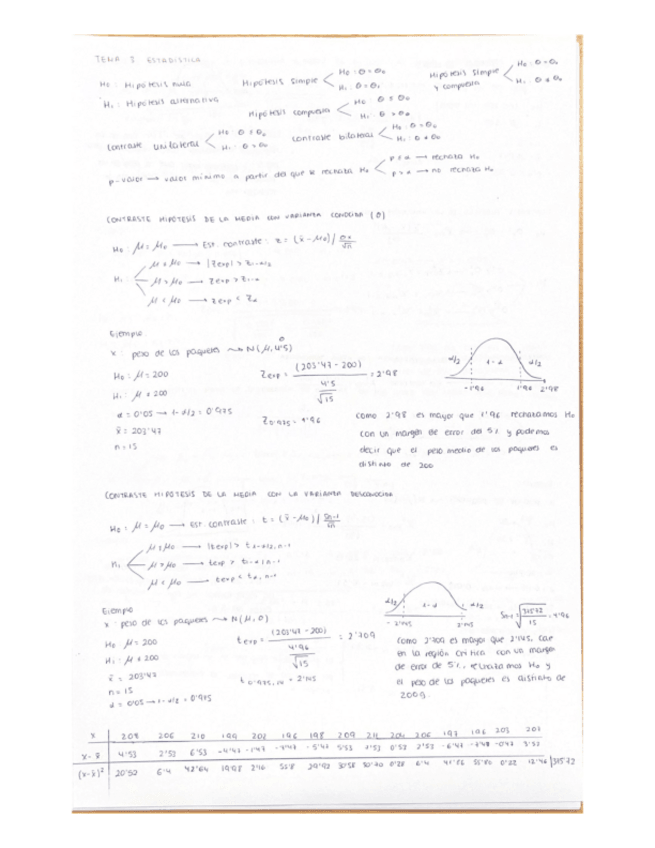 TEMA 5 ESTADISTICA
H₀ : Hipótesis nula
H₁ : Hipótesis alternativa
Hipótesis simple < H₀ : θ = θ₀
H₁ : θ = θ₁
Hipótesis simple y compuesta < H₀ : θ = θ₀
H₁ : θ ≠ θ₀
Hipótesis compuesta < H₀ : θ ≤ θ₀
H₁ : θ > θ₀
Contraste unilateral < H₀ : θ = θ₀
H₁ : θ > θ₀
Contraste bilateral < H₀ : θ = θ₀
H₁ : θ ≠ θ₀
p-valor → valor mínimo a partir del que se rechaza H₀ < p ≤ α → rechaza H₀
p > α → no rechaza H₀
CONTRASTE HIPÓTESIS DE LA MEDIA CON VARIANZA CONOCIDA (σ)
H₀ : μ = μ₀ → Est. contraste : z = (x̄ - μ₀) / σ/√n
H₁ :
μ ≠ μ₀ → |Zexp| > Z1-α/2
μ > μ₀ → Zexp > Z1-α
μ < μ₀ → Zexp < Zα
Ejemplo
x : peso de los paquetes ~ N(μ, 4'5)
H₀ : μ = 200
H₁ : μ ≠ 200
α = 0'05 → 1-α/2 = 0'975
x̄ = 203'47
n = 15
Zexp = (203'47 - 200) / 4'5/√15 = 2'98
Z0'975 = 1'96
α/2 1-α α/2
-1'96 1'96 2'98
Como 2'98 es mayor que 1'96 rechazamos H₀
con un margen de error del 5% y podemos
decir que el peso medio de los paquetes es
distinto de 200
CONTRASTE HIPÓTESIS DE LA MEDIA CON LA VARIANZA DESCONOCIDA
H₀ : μ = μ₀ → Est. contraste : t = (x̄ - μ₀) / Sn-1/√n
H₁
μ ≠ μ₀ → |texp| > t1-α/2, n-1
μ > μ₀ → texp > t1-α, n-1
μ < μ₀ → texp < tα, n-1
Ejemplo
x : peso de los paquetes ~ N(μ, σ)
H₀ μ = 200
H₁ : μ ≠ 200
x̄ = 203'47
n = 15
α = 0'05 → 1-α/2 = 0'975
texp = (203'47 - 200) / 4'96/√15 = 2'709
t0'975, 14 = 2'145
α/2 1-α α/2
-2'145 2'145
= 4'96
Como 2'709 es mayor que 2'145, cae
en la región crítica con un margen
de error de 5%, rechazamos H₀ y
el peso de los paquetes es distinto de
200g.
x 208 206 210 199 202 196 198 209 206 197 196 203 207
x - x̄ 4'53 2'53 6'53 -4'47 -1'47 -7'47 -5'47 5'53 0'53 2'53 -6'47 -0'47 3'53
(x-x̄)² 20'52 6'4 42'64 19'98 2'16 29'92 30'58 0'28 6'4 41'86 0'22 12'46